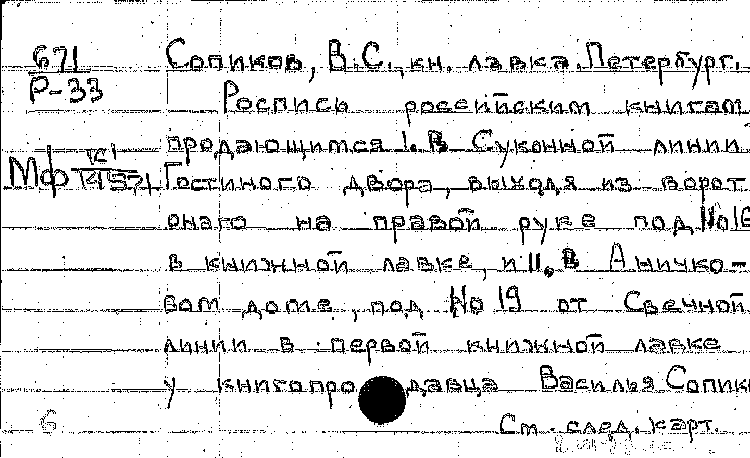 671
Р-33
Сопиков, В.С., кн. лавка. Петербург.
Роспись российским книгам
продающимся I. В Суконной линии
Мф К1
Гостиного двора, выходя из ворот
онаго на правой руке под №16
в книжной лавке, и II, в Аничко-
вом доме, под №19 от Свечной
линии в первой книжной лавке
у книгопродавца Василья Сопик
6
См. след. карт.